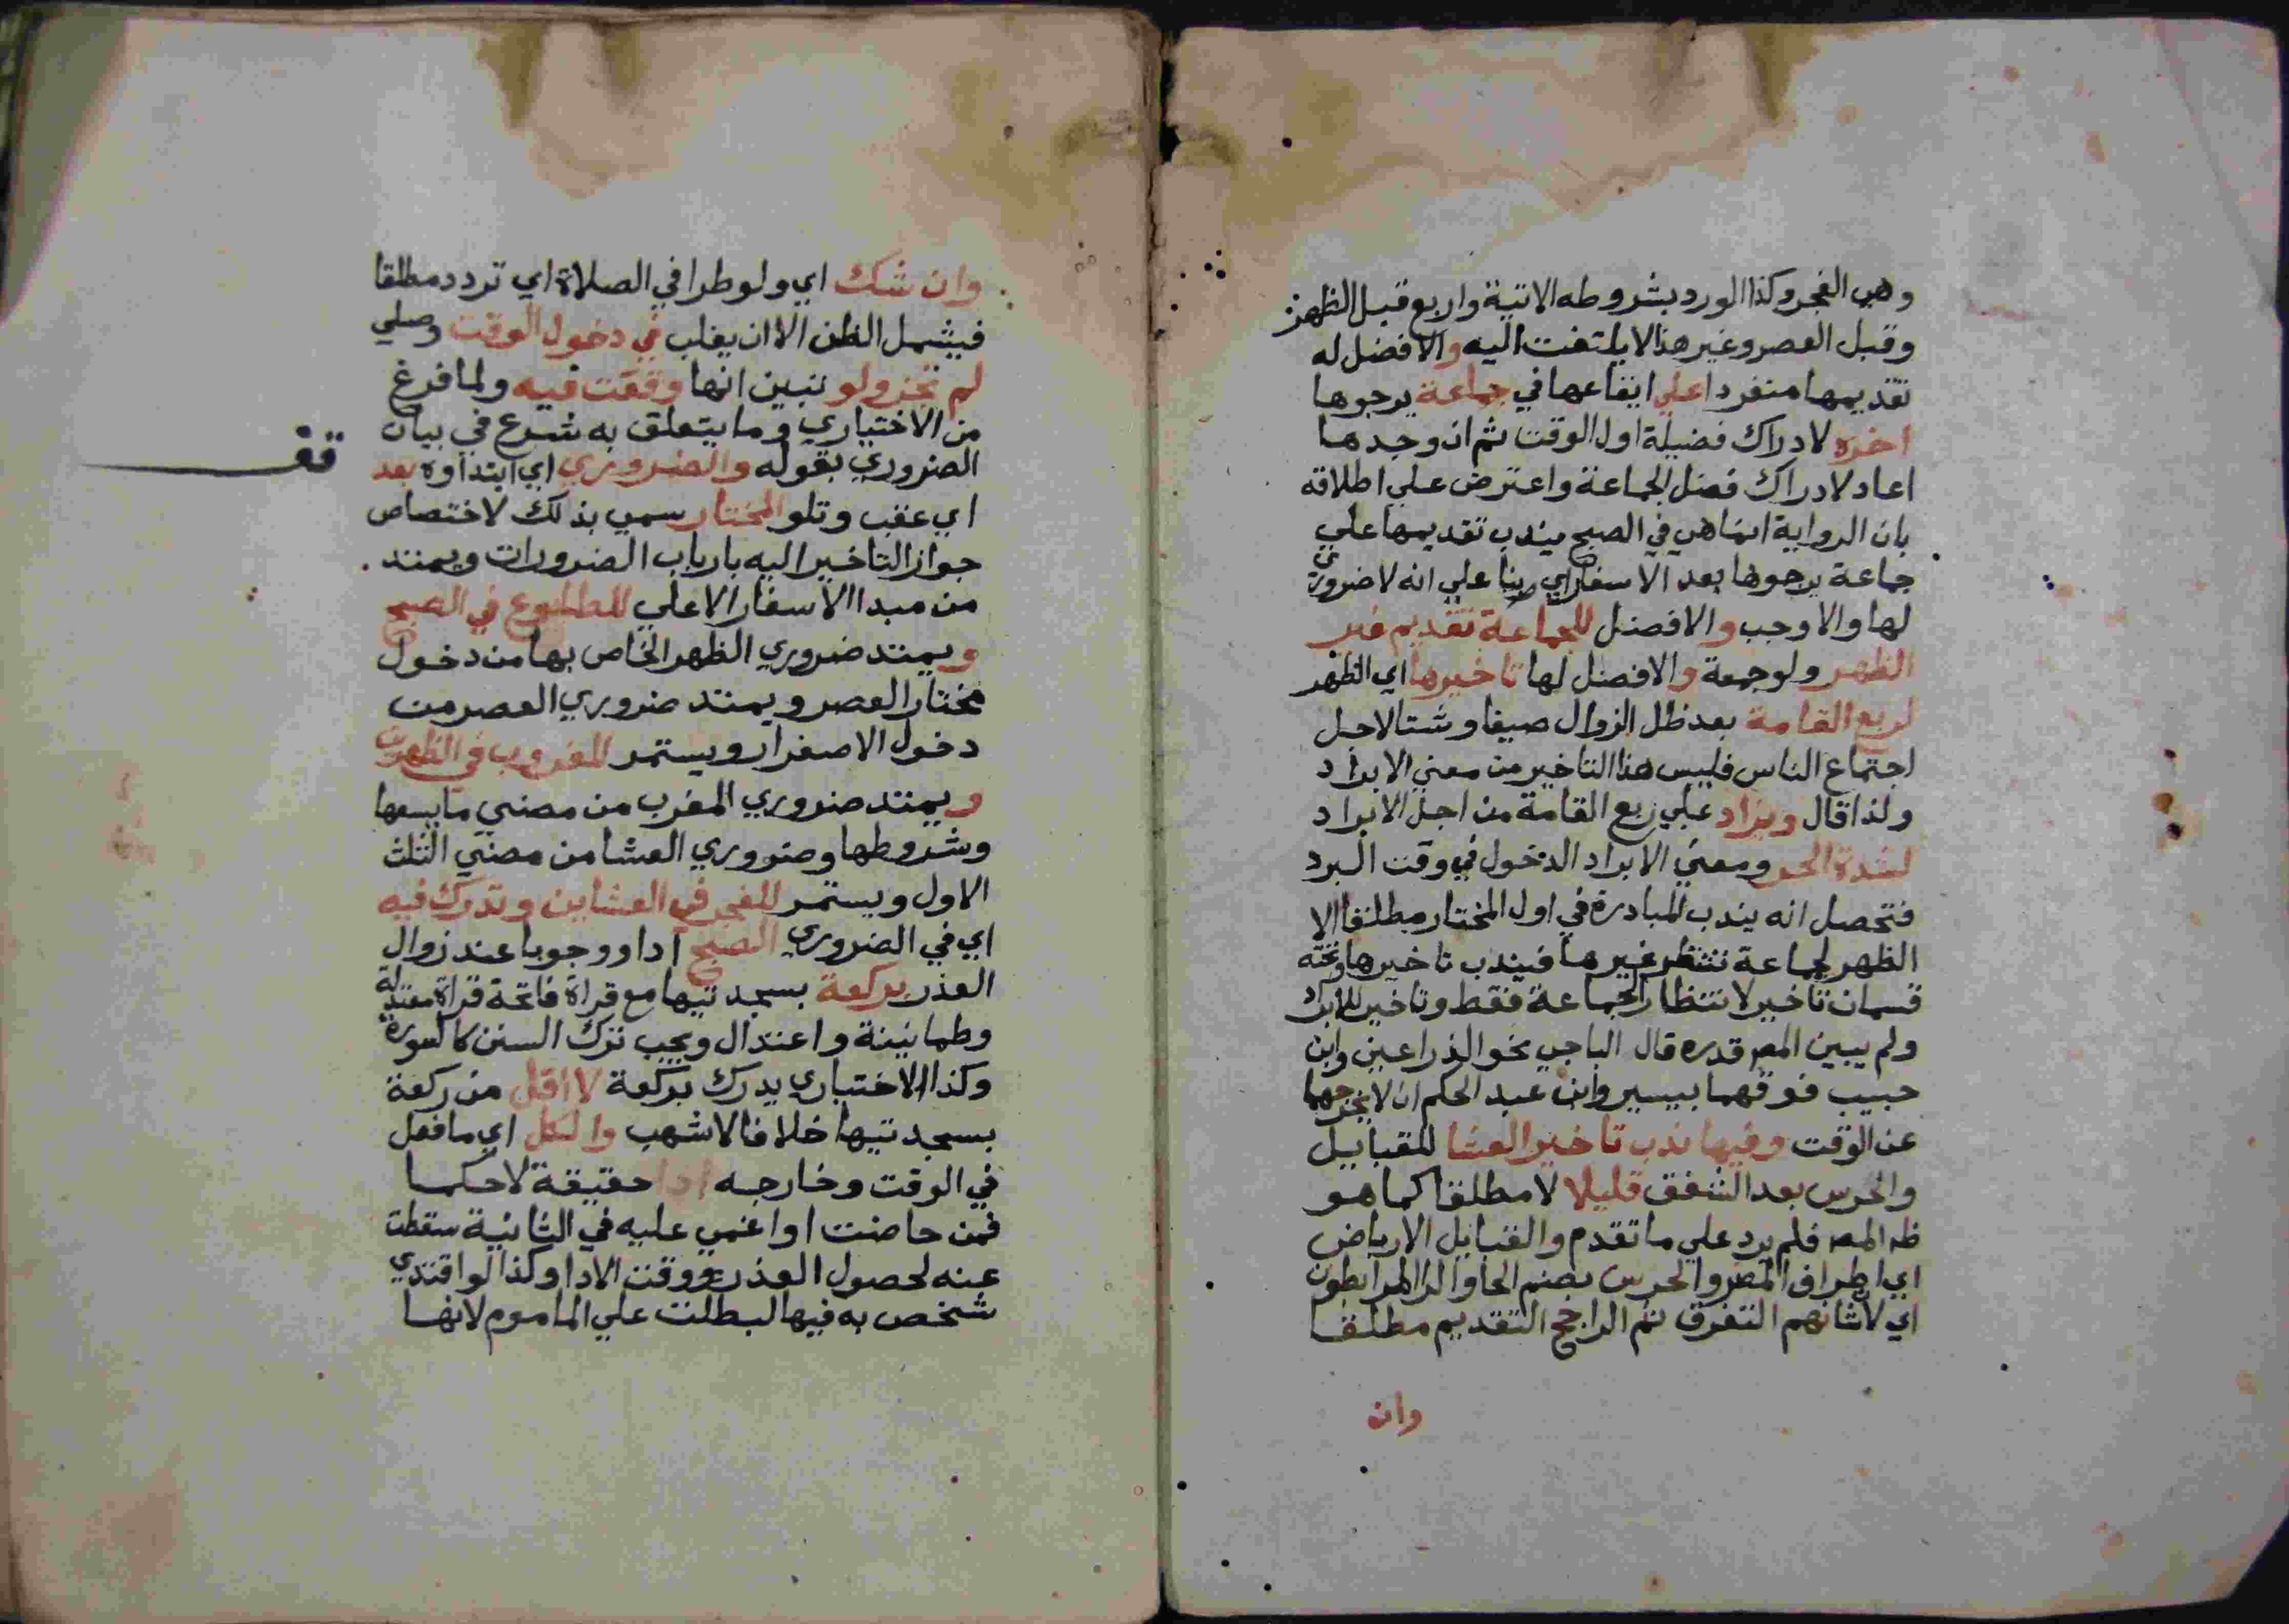 وهي الفجر وكذا الورد بشروطه الاتية واربع قبل الظهر
وقبل العصر وغير هذا لا يلتفت اليه والافضل له
تقديمها منفردا علي ايقاعها في جماعة يرجوها
اخره لادراك فضيلة اول الوقت ثم ان وجدها
اعاد لادراك فضل الجماعة واعترض علي اطلاقه
بان الرواية انما هي في الصبح يندب تقديمها علي
جماعة يرجوها بعد الاسفار اي بنا علي انه لا ضروري
لها والاوجب والافضل للجماعة تقديم غير
الظهر ولو جمعة والافضل لها تاخيرها اي الظهر
لربع القامة بعد ظل الزوال صيفا وشتا لاجل
اجتماع الناس فليس هذا التاخير من معني الابراد
ولذا قال ويزاد علي ربع القامة من اجل الابراد
لشدة الحر ومعني الابراد الدخول في وقت البرد
فتحصل انه يندب المبادرة في اول المختار مطلقا الا
الظهر لجماعة تنتظر غيرها فيندب تاخيرها وتحته
قسمان تاخير لانتظار الجماعة فقط وتاخير للابراد
ولم يبين المص قدره قال الباجي نحو الذراعين وابن
حبيب فوقهما بيسير وابن عبد الحكم ان لا يخرجها
عن الوقت وفيها ندب تاخير العشا للقبايل
والحرس بعد الشفق قليلا لا مطلقا كما هو
ظه المص فلم يرد علي ما تقدم والقبايل الارباض
اي اطراف المصر والحرس بضم الحا والرا المرابطون
اي لان شانهم التفرق ثم الراجح التقديم مطلقا
وان
وان شك اي ولو طرا في الصلاة اي تردد مطلقا
فيشمل الظن الا ان يغلب في دخول الوقت وصلي
لم تجز ولو تبين انها وقعت فيه ولما فرغ
من الاختياري وما يتعلق به شرع في بيان
الضروري بقوله والضروري اي ابتداوه بعد
قف
اي عقب وتلو المختار سمي بذلك لاختصاص
جواز التاخير اليه بارباب الضرورات ويمتد
من مبدا الاسفار الاعلي للطلوع في الصبح
ويمتد ضروري الظهر الخاص بها من دخول
مختار العصر ويمتد ضروري العصر من
دخول الاصفرار ويستمر للغروب في الظهرين
ويمتد ضروري المغرب من مضي ما يسعها
وشروطها وضروري العشا من مضي الثلث
الاول ويستمر للفجر في العشاين وتدرك فيه
اي في الضروري الصبح ادا ووجوبا عند زوال
العذر بركعة بسجدتيها مع قراة فاتحة قراة معتدلة
وطمانينة واعتدال ويجب ترك السنن كالسورة
وكذا الاختياري يدرك بركعة لا اقل من ركعة
بسجدتيها خلافا لاشهب والكل اي ما فعل
في الوقت وخارجه ادا حقيقة لا حكما
فمن حاضت او اغمي عليه في الثانية سقطت
عنه لحصول العذر ووقت الادا وكذا لو اقتدي
شخص به فيها لبطلت علي الماموم لانها